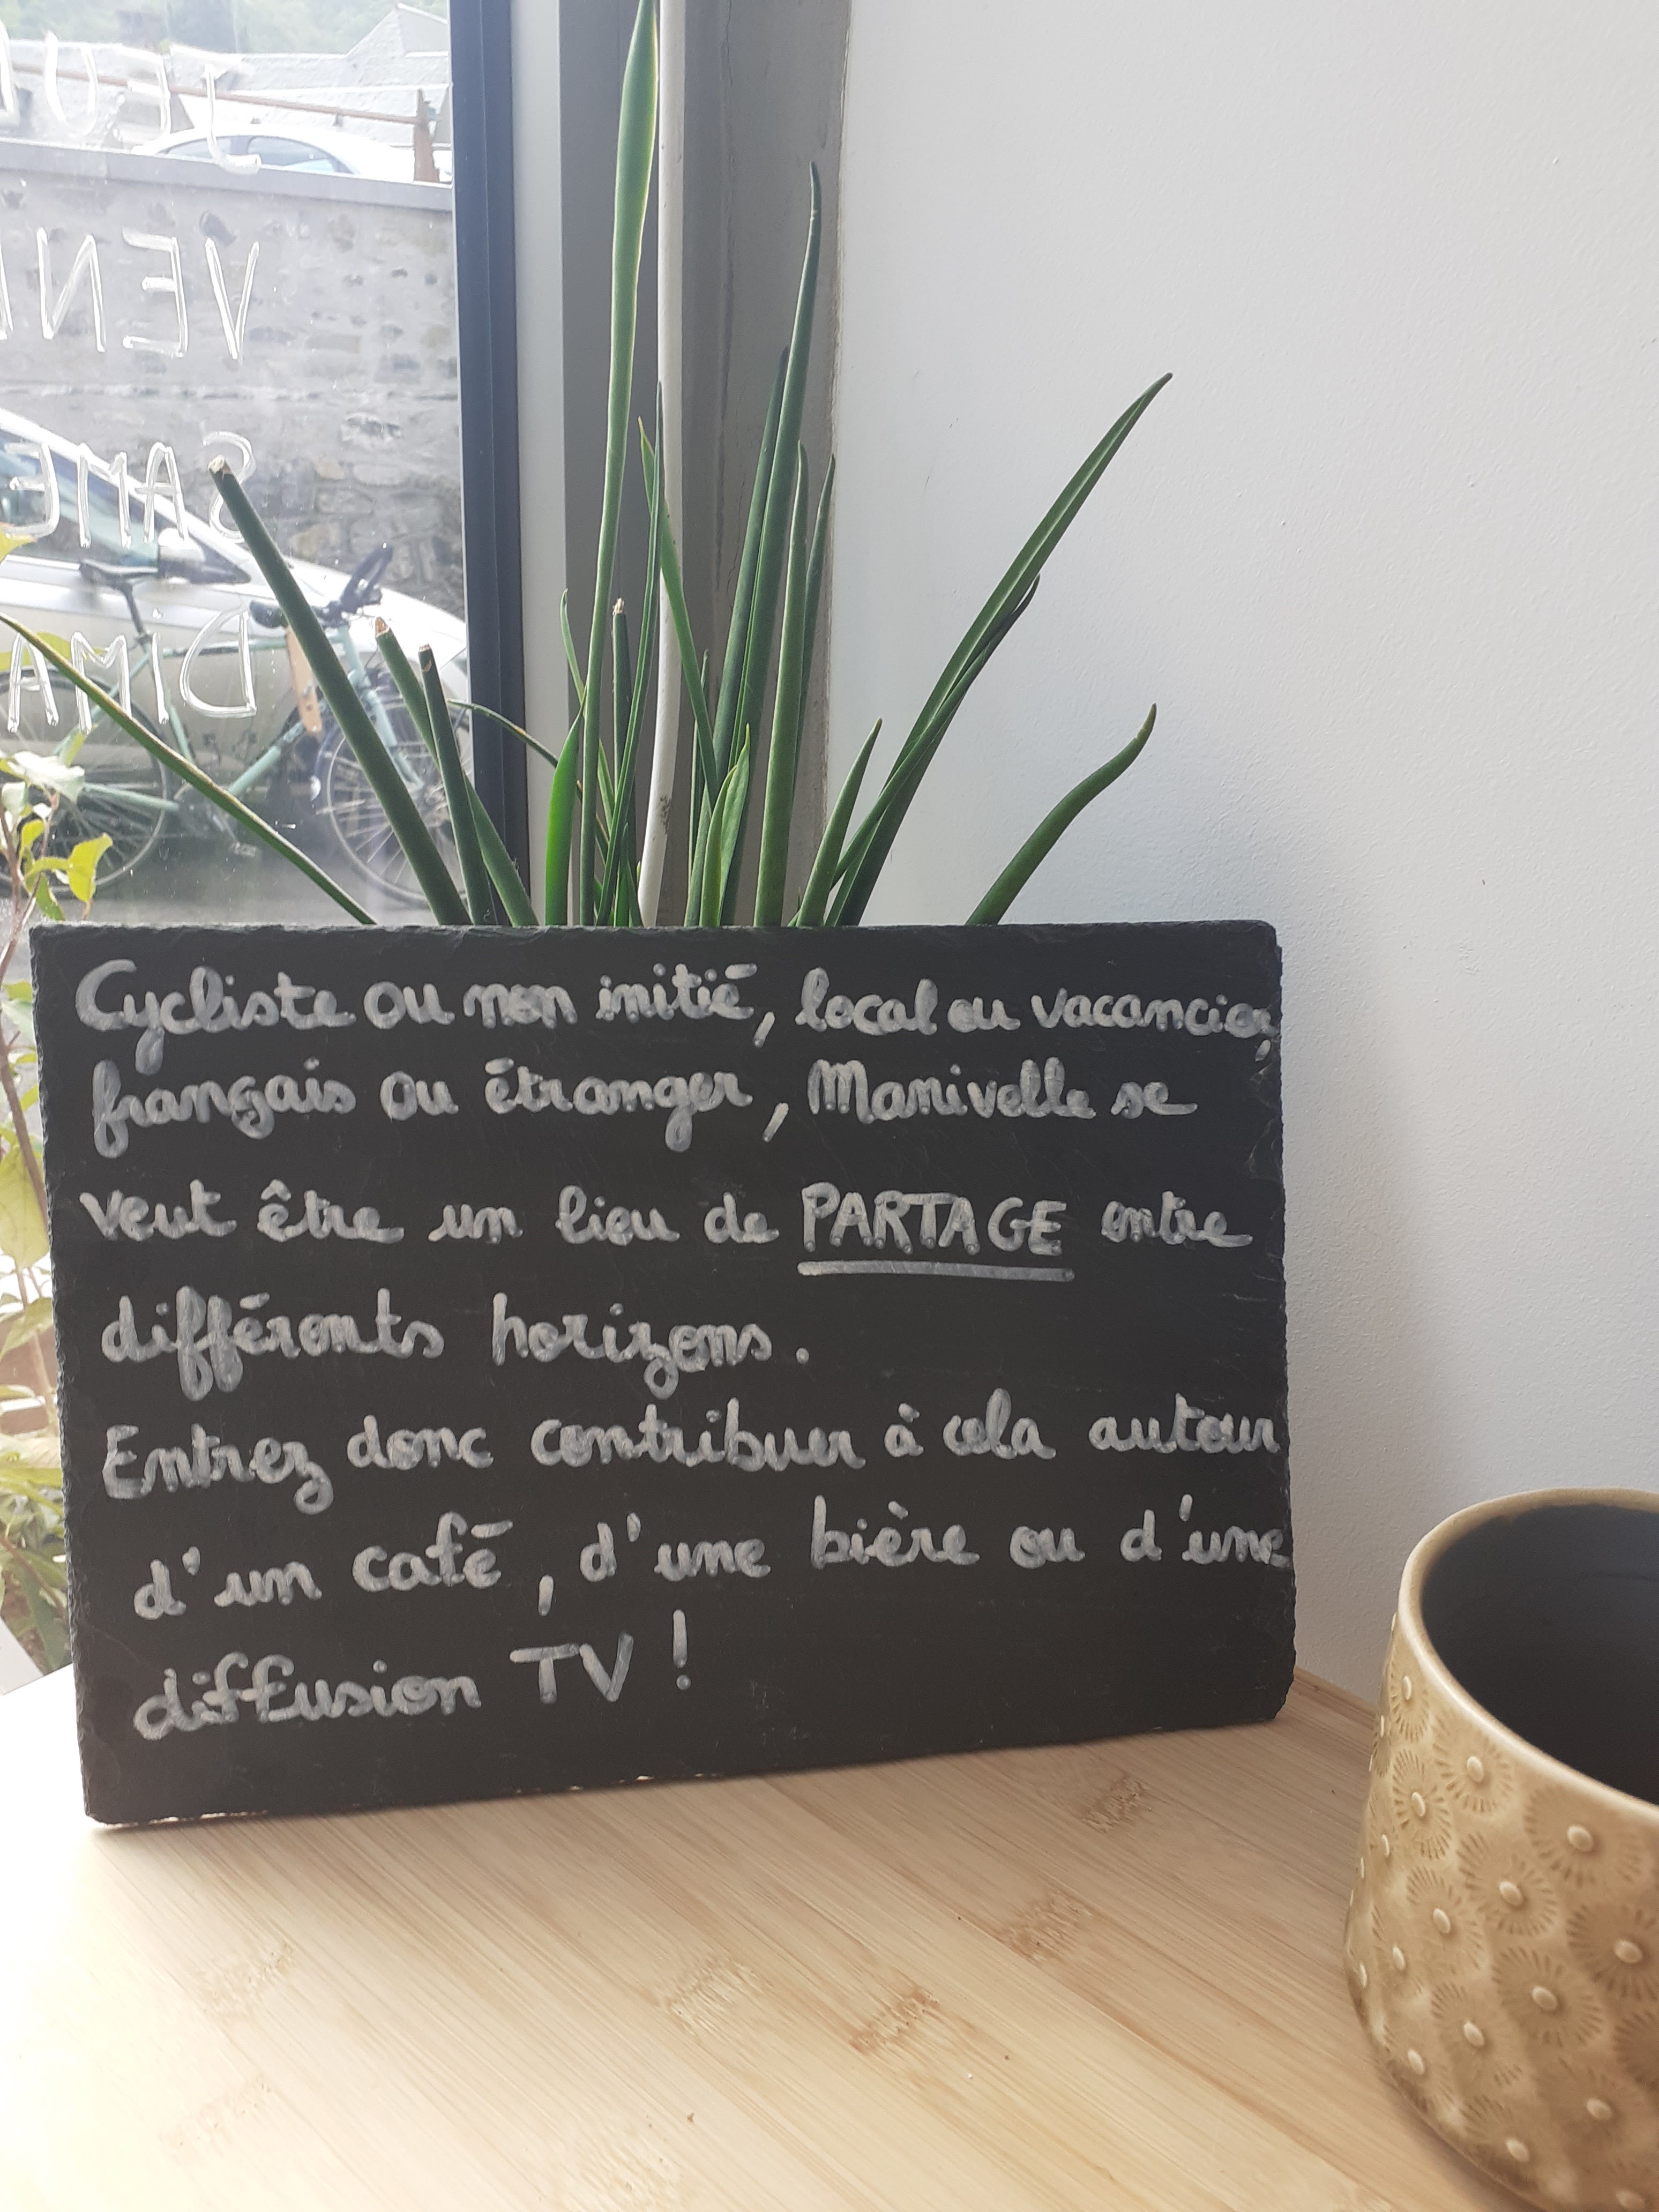 JEU
VEN
SAME
DiMA
Cycliste ou non initié, local ou vacancier,
français ou étranger, Manivelle se
veut être un lieu de PARTAGE entre
différents horizons.
Entrez donc contribuer à cela autour
d'un café, d'une bière ou d'une
diffusion TV !